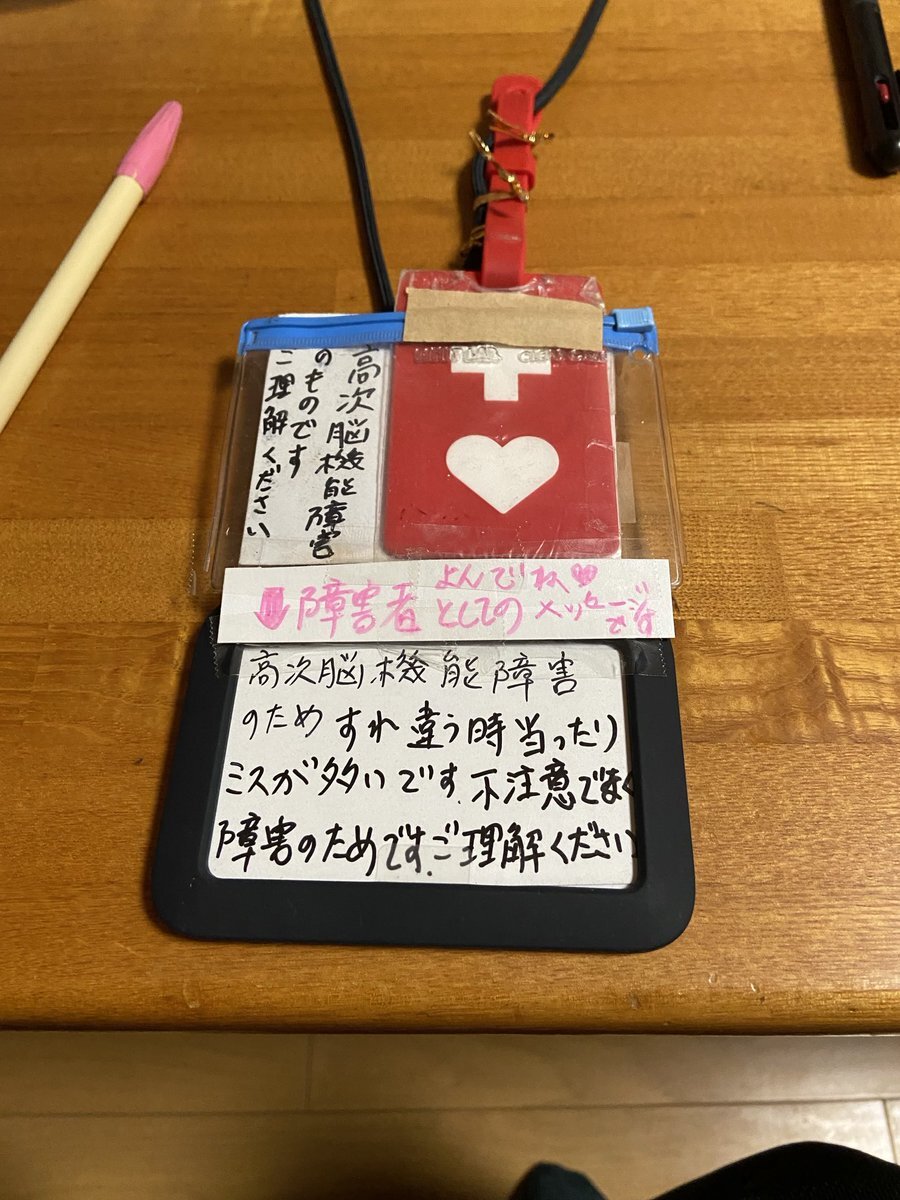 高次脳機能障害
のものです
ご理解ください
よんでね♥
⬇障害者としてのメッセージです
高次脳機能障害
のためすれ違う時当ったり
ミスが多いです.不注意でなく
障害のためです.ご理解ください